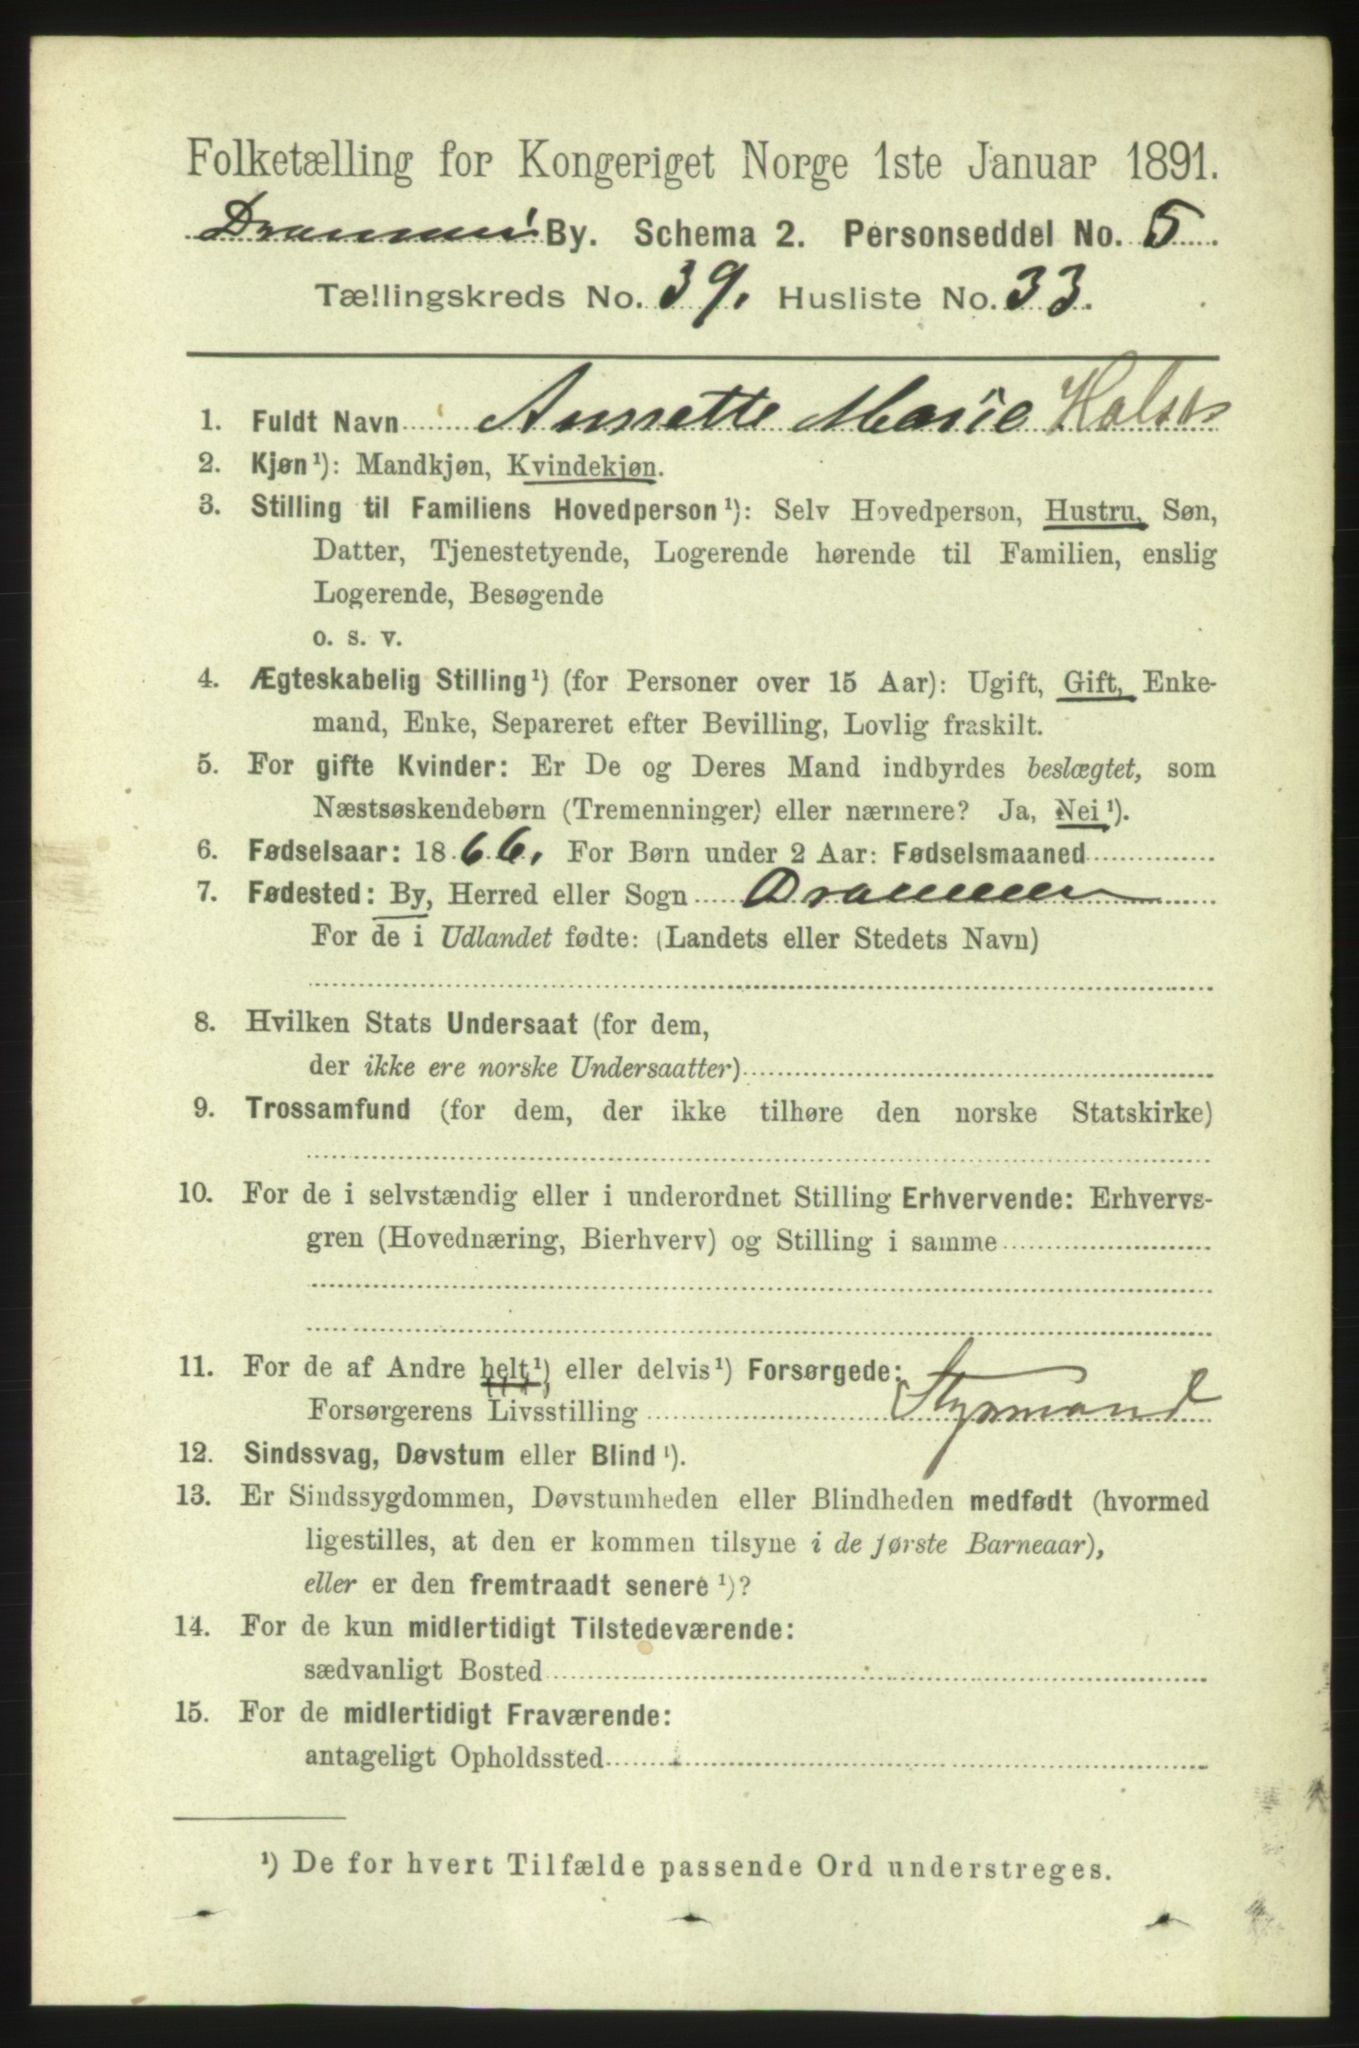 Folketælling for Kongeriget Norge 1ste Januar 1891.
Drammen By. Schema 2. Personseddel No. 5.
Tællingskreds No. 39. Husliste No. 33.
1. Fuldt Navn Annette Marie
2. Kjøn ¹): Mandkjøn, Kvindekjøn.
3. Stilling til Familiens Hovedperson ¹): Selv Hovedperson, Hustru, Søn,
Datter, Tjenestetyende, Logerende hørende til Familien, enslig
Logerende, Besøgende
o. s. v.
4. Ægteskabelig Stilling ¹) (for Personer over 15 Aar): Ugift, Gift, Enke-
mand, Enke, Separeret efter Bevilling, Lovlig fraskilt.
5. For gifte Kvinder: Er De og Deres Mand indbyrdes beslægtet, som
Næstsøskendebørn (Tremenninger) eller nærmere? Ja, Nei ¹).
6. Fødselsaar: 1866. For Børn under 2 Aar: Fødselsmaaned
7. Fødested: By, Herred eller Sogn Drammen
For de i Udlandet fødte: (Landets eller Stedets Navn)
8. Hvilken Stats Undersaat (for dem,
der ikke ere norske Undersaatter)
9. Trossamfund (for dem, der ikke tilhøre den norske Statskirke)
10. For de i selvstændig eller i underordnet Stilling Erhvervende: Erhvervs-
gren (Hovednæring, Bierhverv) og Stilling i samme
11. For de af Andre helt ¹) eller delvis ¹) Forsørgede:
Forsørgerens Livsstilling Styrmand
12. Sindssvag, Døvstum eller Blind ¹).
13. Er Sindssygdommen, Døvstumheden eller Blindheden medfødt (hvormed
ligestilles, at den er kommen tilsyne i de første Barneaar),
eller er den fremtraadt senere ¹)?
14. For de kun midlertidigt Tilstedeværende:
sædvanligt Bosted
15. For de midlertidigt Fraværende:
antageligt Opholdssted
¹) De for hvert Tilfælde passende Ord understreges.